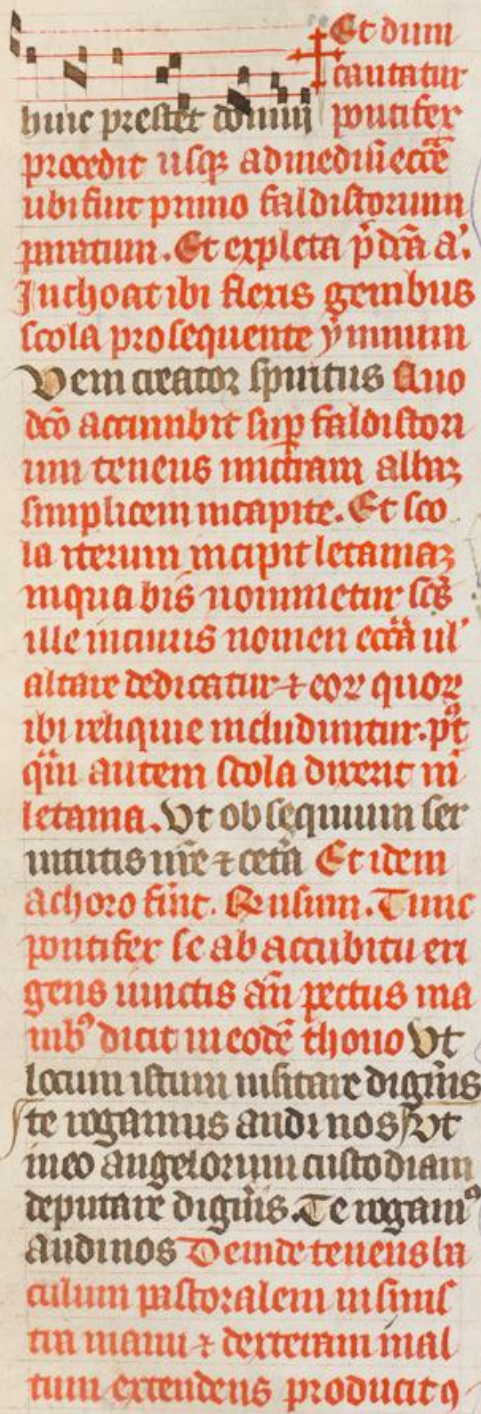 Et dum
cantatur
huic prestet domui pontifex
procedit usq; ad mediū eccē
ubi sint primo faldistorium
paratum. Et expleta p̄dca a.
Inchoat ibi flexis genibus
scola prosequente ymnum
Veni creator spiritus Quo
dcō accumbit sup faldistori
um tenens mictram albaꝫ
simplicem in capite. Et sco
la iterum incipit letaniaꝫ
in qua bis nominetur scs
ille in cuius nomen eccā ul'
altare dedicatur ⁊ eoꝝ quoꝝ
ibi reliquie includuntur. pꝰt
qm̄ autem scola dixerit in
letania. Vt obsequium ser
uitutis nr̄e ⁊ cetā Et idem
a choro sint. Rnsum. Tunc
pontifex se ab accubitu eri
gens iunctis an̄ pectus ma
nibꝰ dicit in eodē thono Vt
locum istum uisitare digr̄is
te rogamus audi nos Vt
in eo angelorum custodiam
deputare digr̄is. Te rogamꝰ
audi nos Deinde tenens ba
culum pastoralem in sinis
tra manu ⁊ dexteram in al
tum extendens producit ꝯ